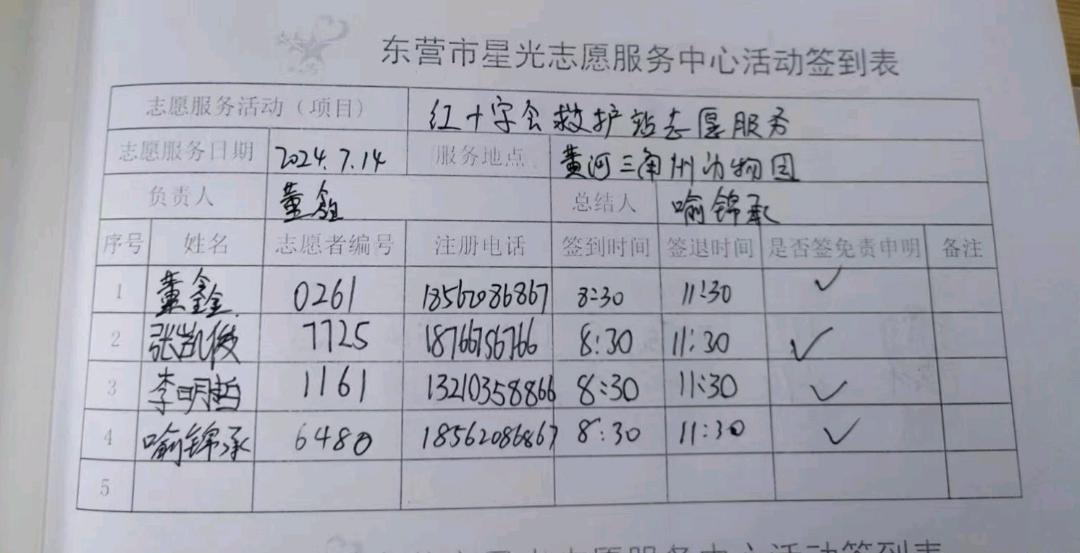 东营市星光志愿服务中心活动签到表
志愿服务活动（项目） 红十字会救护站志愿服务
志愿服务日期 2024.7.14 服务地点 黄河三角州动物园
负责人 董鑫 总结人 喻锦承
序号 姓名 志愿者编号 注册电话 签到时间 签退时间 是否签免责申明 备注
1 董鑫 0261 18562086867 8:30 11:30 ✓
2 张凯俊 7725 18766756766 8:30 11:30 ✓
3 李明哲 1161 13210358866 8:30 11:30 ✓
4 喻锦承 6480 18562086867 8:30 11:30 ✓
5
星光志愿服务中心活动签到表